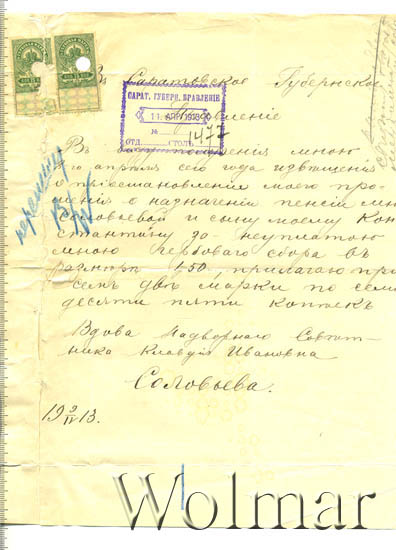 Въ Саратовское Губернское
Правление
САРАТ. ГУБЕРН. ПРАВЛЕНІЕ
11. АПР 1913
№ 1477
ОТД. СТОЛЪ
Въ мною
апреля сего года извѣщенія
о пріостановленіи моего про-
шенія о назначеніи пенсіи мнѣ
Соловьевой и сыну моему Кон
стантину за неуплатою
мною гербоваго сбора въ
размѣрѣ 1.50, прилагаю при
семъ двѣ марки по семи
десяти пяти копѣекъ
Вдова Надворнаго Совѣт-
ника Клавдія Ивановна
Соловьева.
19 9/IV 13.
Wolmar